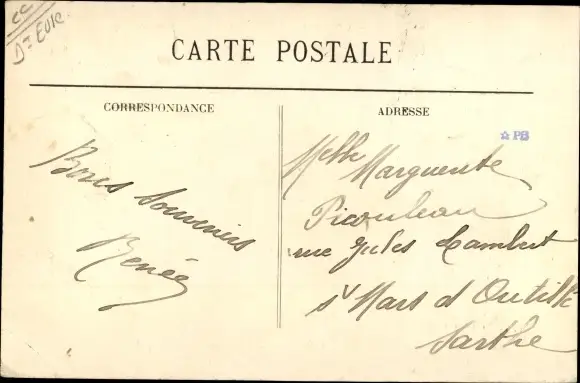 CC
Dt EURE
CARTE POSTALE
CORRESPONDANCE
ADRESSE
☆ PB
Bons Souvenirs
Renée
Melle Marguerite
Picouleau
rue Jules Lambert
St Mars d Outillé
Sarthe